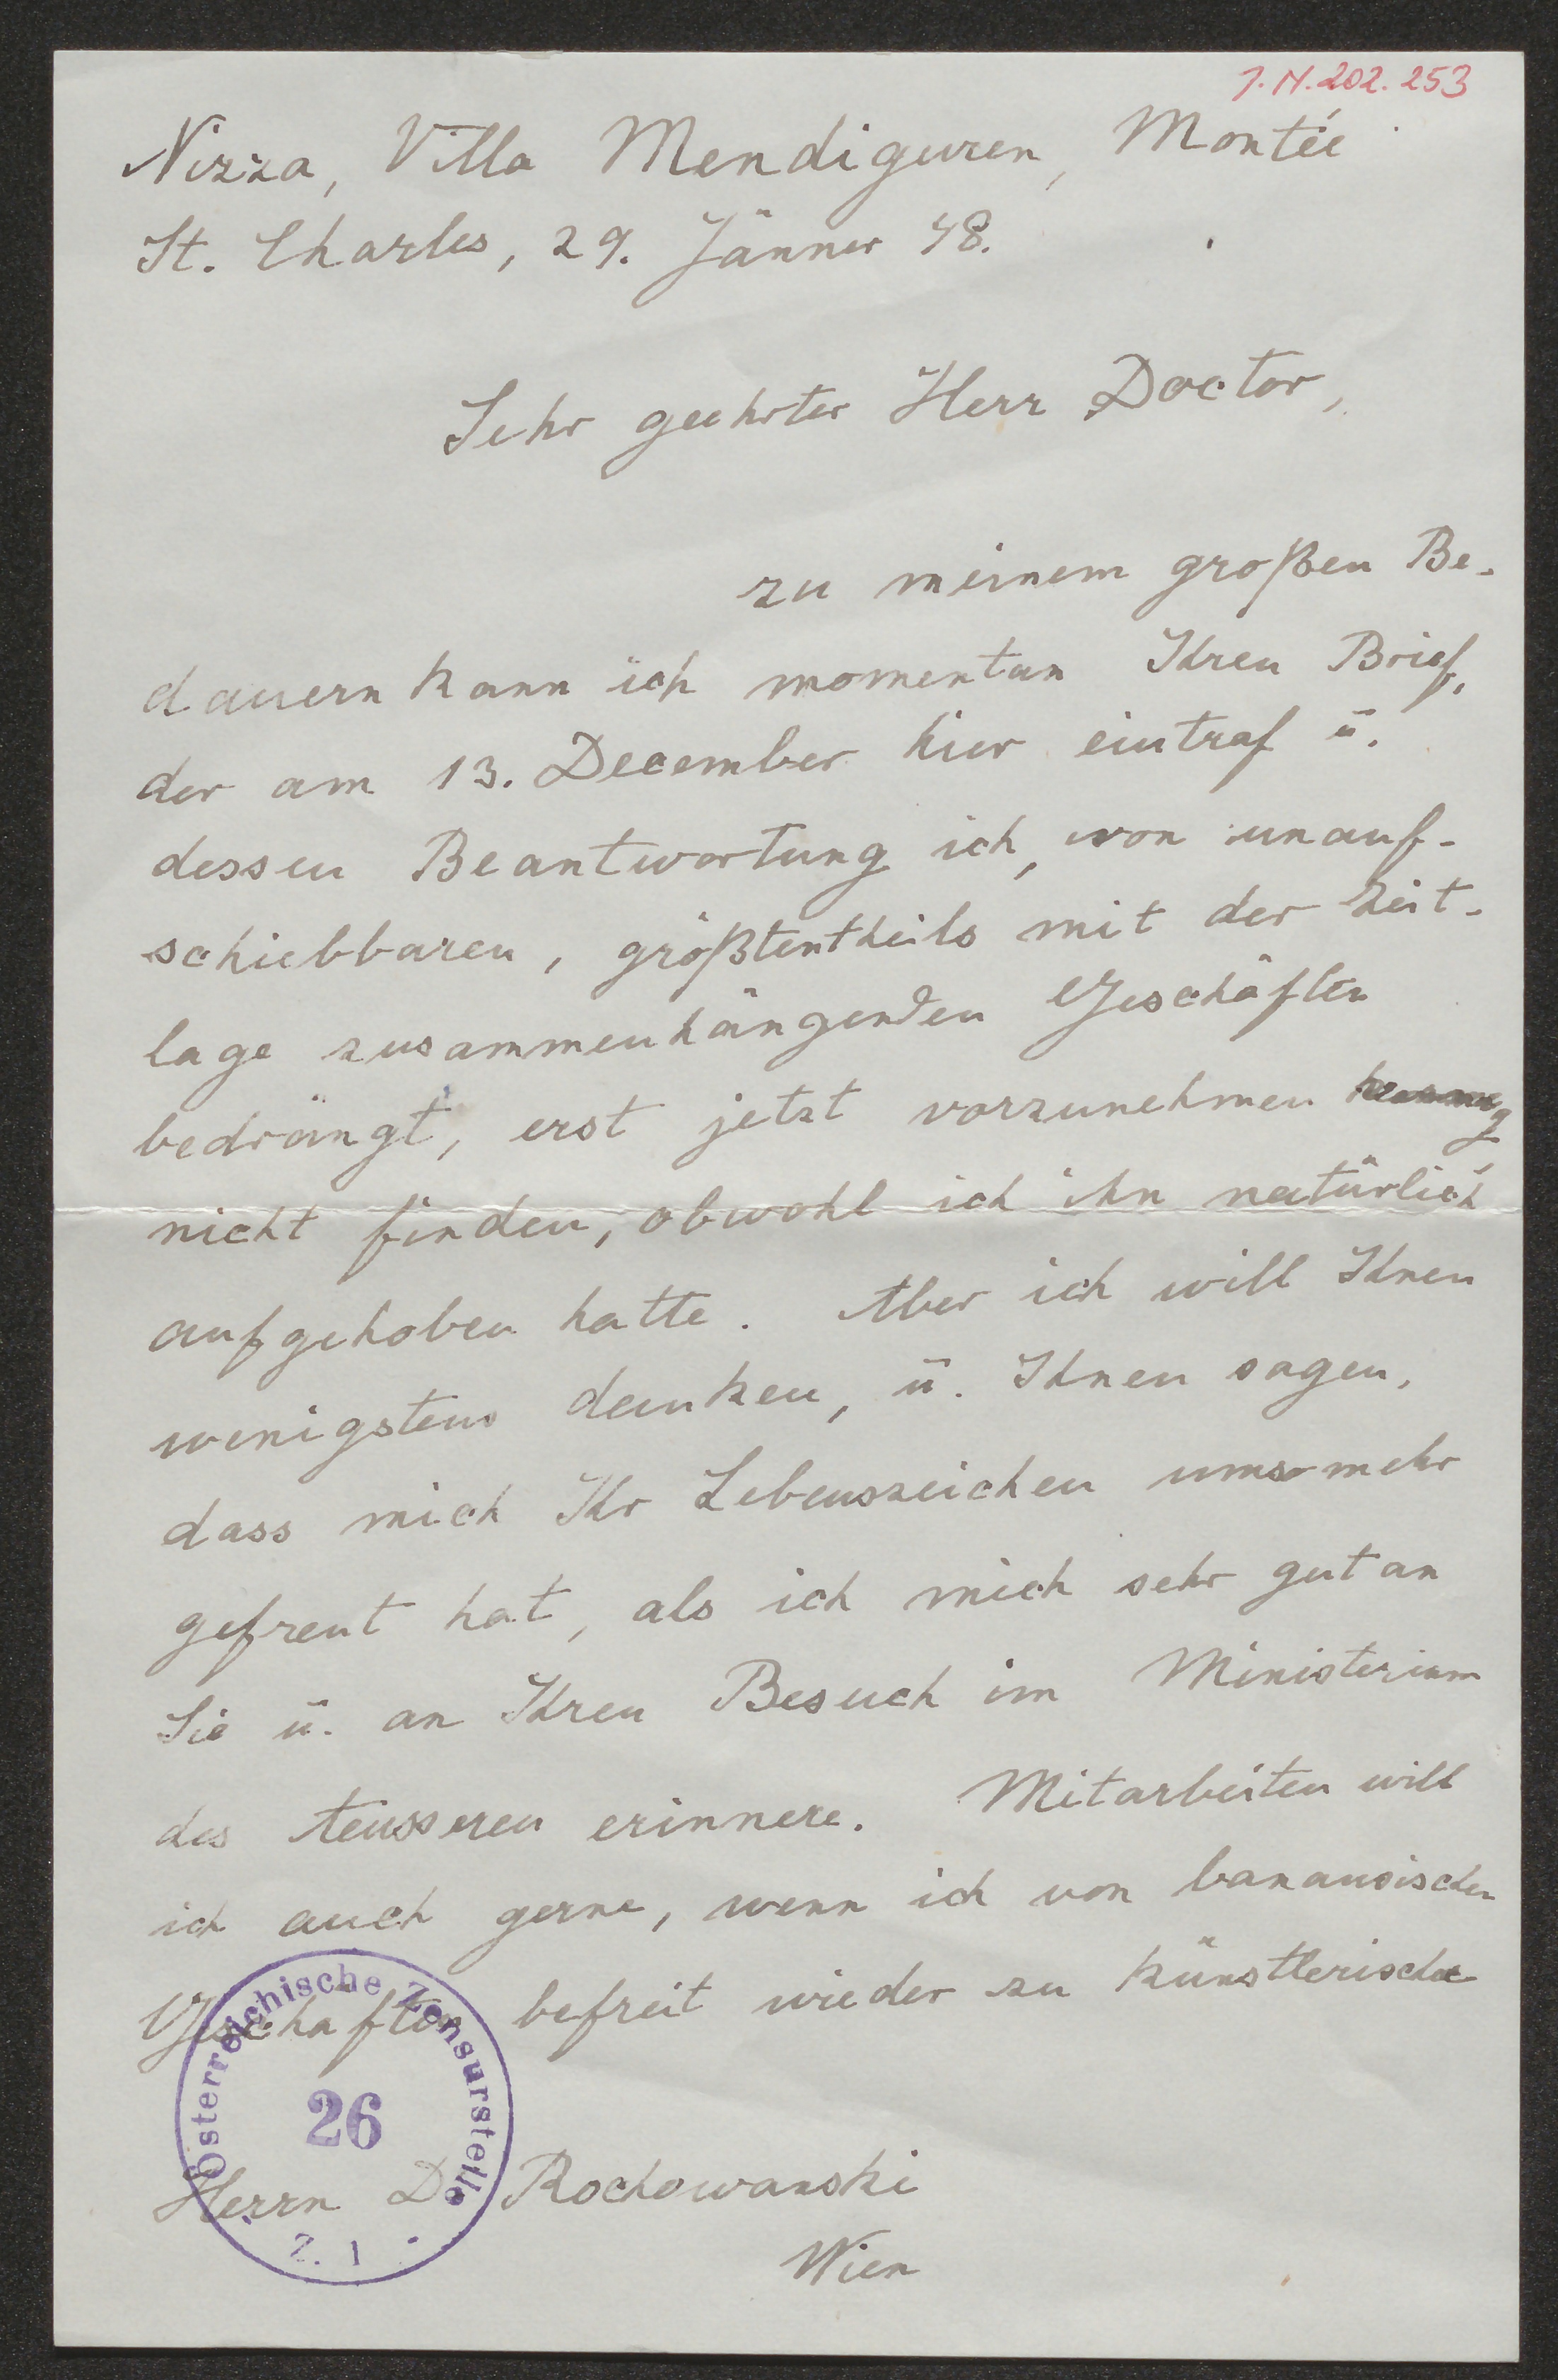 J.N.202.253
Nizza, Villa Mendiguren, Montée
St. Charles, 29. Jänner 48.
Sehr geehrter Herr Doctor,
zu meinem großen Be-
dauern kann ich momentan Ihren Brief,
der am 13. December hier eintraf u.
dessen Beantwortung ich, von unauf-
schiebbaren, größtentheils mit der Zeit-
lage zusammenhängenden Geschäften
bedrängt, erst jetzt vorzunehmen
nicht finden, obwohl ich ihn natürlich
aufgehoben hatte. Aber ich will Ihnen
wenigstens danken, u. Ihnen sagen,
dass mich Ihr Lebenszeichen umsomehr
gefreut hat, als ich mich sehr gut an
Sie u. an Ihren Besuch im Ministerium
des Aeusseren erinnere. Mitarbeiten will
ich auch gerne, wenn ich von banausischen
Geschäften befreit wieder zu künstlerischer
Herrn Dr Rochowanski
Wien
Österreichische Zensurstelle
26
Z. 1